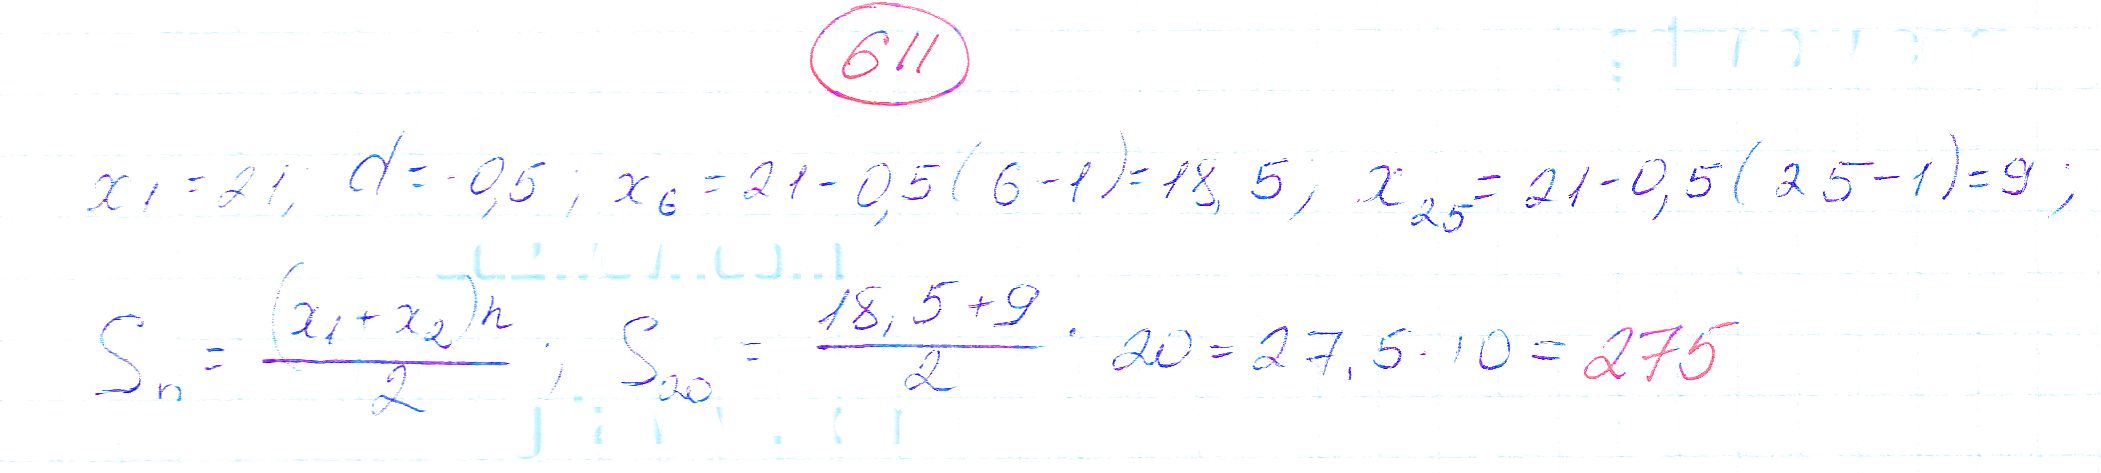 611
x₁ = 21; d = -0,5; x₆ = 21 - 0,5(6 - 1) = 18,5; x₂₅ = 21 - 0,5(25 - 1) = 9;
Sₙ = (x₁ + x₂)n / 2; S₂₀ = 18,5 + 9 / 2 · 20 = 27,5 · 10 = 275